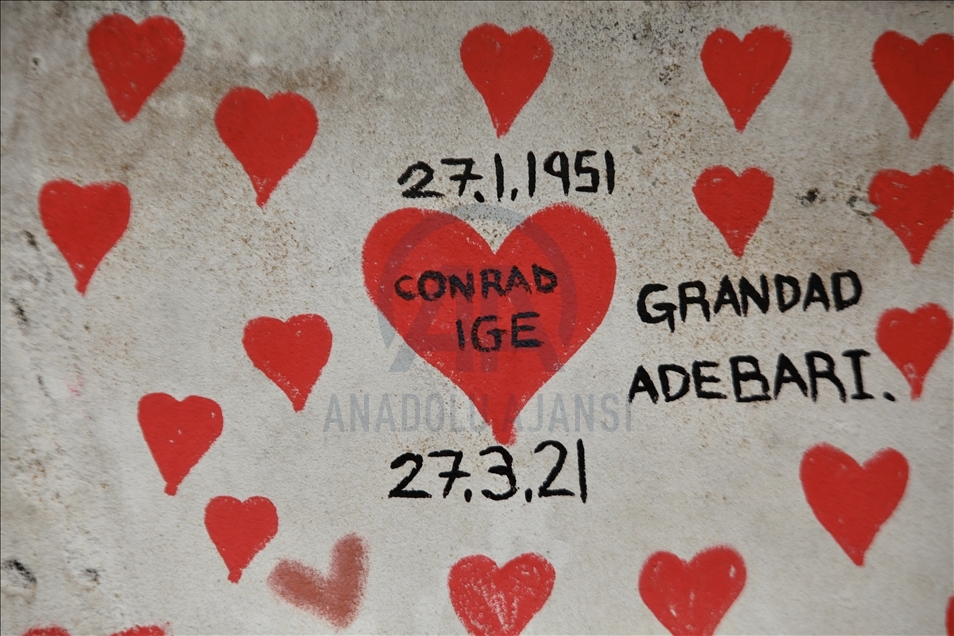 27.1.1951
CONRAD
IGE
GRANDAD
ADEBARI.
ANADOLU AJANSI
27.3.21